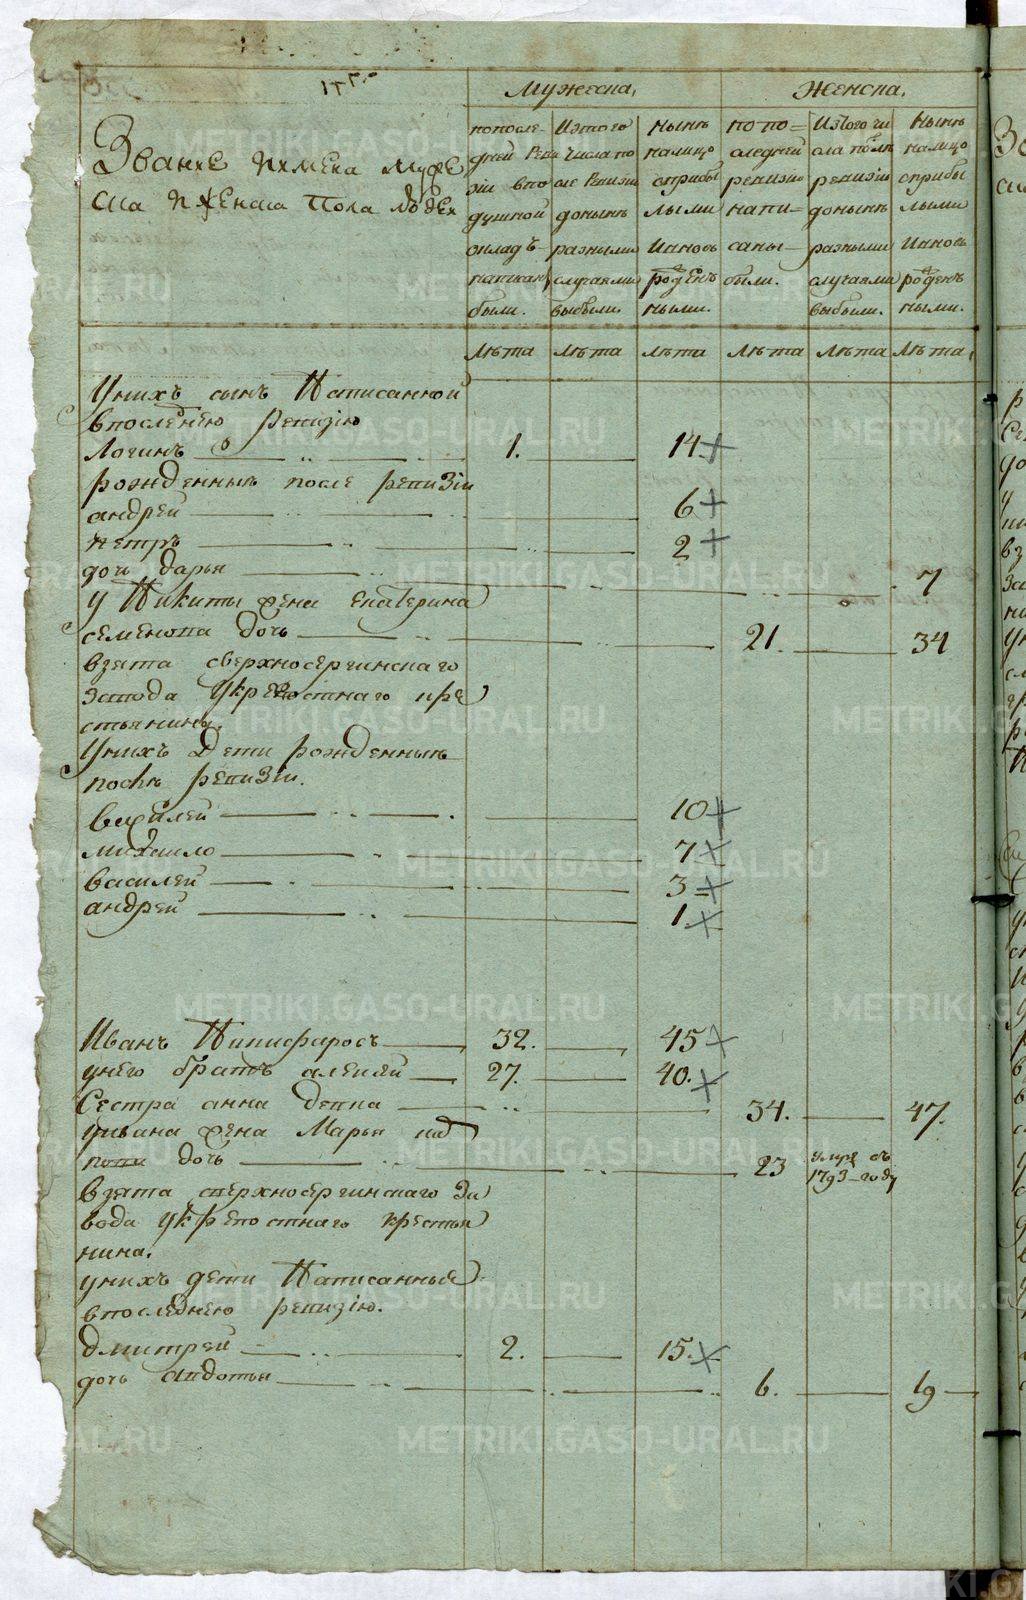 Мужеска,
Женска,
Звание и имена муже
ска и женска пола людех
попосле-
дней реви
зiи впо
душной
окладъ
написан
были.
Изтого
числа по
сле ревизи
донынѣ
разными
случаями
выбыли.
нынѣ
налицо
сприбы
лыми
иновь
рожденъ
ными.
попо=
следней
ревизии
напи-
саны-
были.
Изтого чи
сла посли
ревизiи
донынѣ
разными
случаями
выбыли.
нынѣ
налицо
сприбы
лыми
иновь
рожденъ
ными.
Лѣта Лѣта Лѣта Лѣта Лѣта Лѣта,
Унихъ сынъ Написанной
впослению ревизiю
Логинъ 1. 14
рожденныя после ревизiи
андрей 6
петръ 2
дочь дарья 7
у Никиты жена екатерина
семенова дочь 21. 34
взята сверхносергинскаго
завода укрепостнаго кре
стьянина.
Унихъ дети рожденныя
послѣ ревизiи.
10
михаило 7
василей 3
андрей 1.
Иванъ Никифоровъ 32. 45
унего братъ алексей 27. 40.
Сестра анна девка 34. 47.
уивана жена Марья
дочь 23 умре въ
1793 году
взята сверхносергинскаго за
вода укрепостнаго крестья
нина.
унихъ дети Написанныя
впоследнею ревизiю.
дмитрей 2. 15.
дочь авдотья 6. 19
METRIKI.GASO-URAL.RU